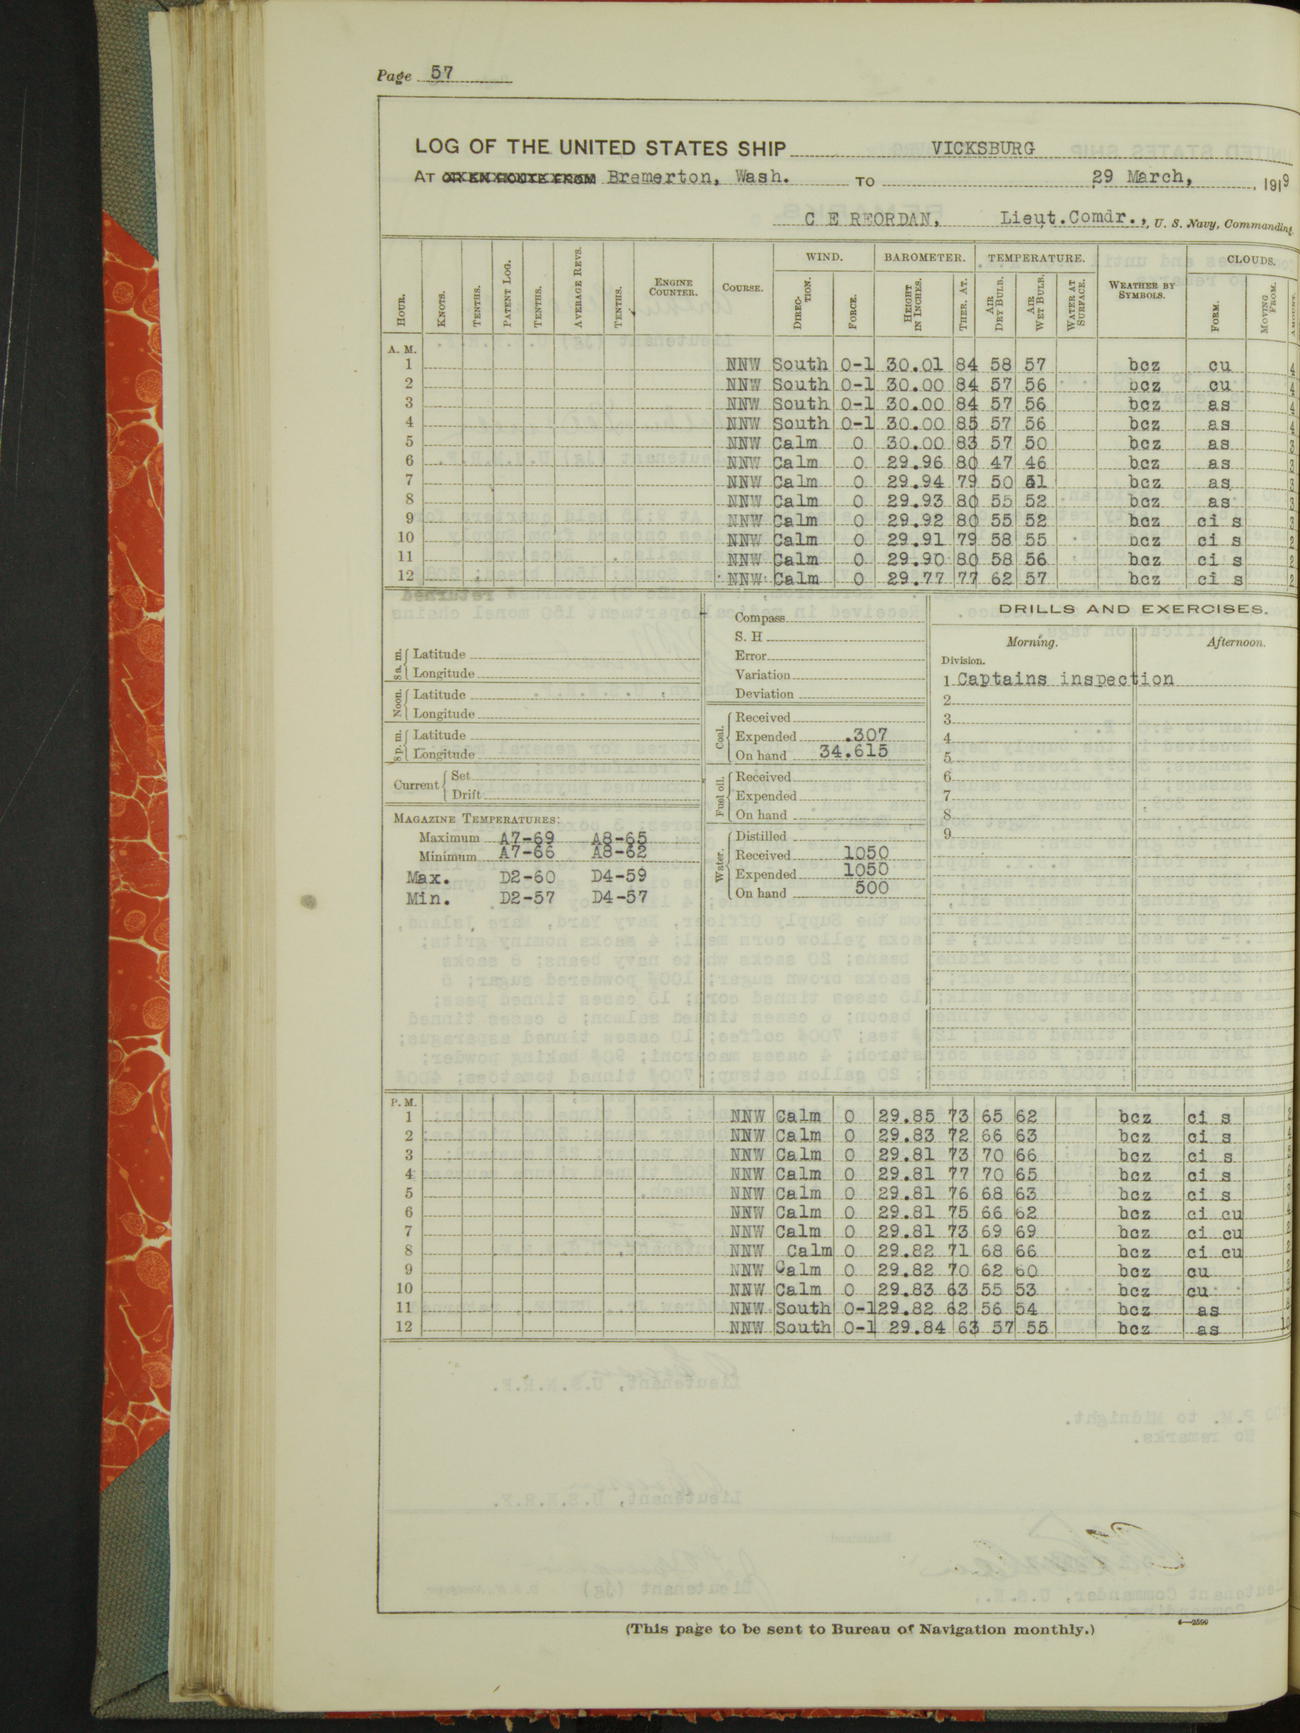 Page 57
LOG OF THE UNITED STATES SHIP VICKSBURG
AT OR EN ROUTE FROM Bremerton, Wash. TO 29 March, 1919
C E REORDAN, Lieut.Comdr., U. S. Navy, Commanding.
WIND. BAROMETER. TEMPERATURE. CLOUDS.
HOUR. KNOTS. TENTHS. PATENT LOG. TENTHS. AVERAGE REVS. TENTHS. ENGINE COUNTER. COURSE. DIRECTION. FORCE. HEIGHT IN INCHES. THER. AT. AIR DRY BULB. AIR WET BULB. WATER AT SURFACE. WEATHER BY SYMBOLS. FORM. MOVING FROM. AMOUNT.
A. M.
1 NNW South 0-1 30.01 84 58 57 bcz cu 4
2 NNW South 0-1 30.00 84 57 56 bcz cu 4
3 NNW South 0-1 30.00 84 57 56 bcz as 4
4 NNW South 0-1 30.00 85 57 56 bcz as 4
5 NNW Calm 0 30.00 83 57 50 bcz as 3
6 NNW Calm 0 29.96 80 47 46 bcz as 3
7 NNW Calm 0 29.94 79 50 51 bcz as 3
8 NNW Calm 0 29.93 80 55 52 bcz as 3
9 NNW Calm 0 29.92 80 55 52 bcz ci s 3
10 NNW Calm 0 29.91 79 58 55 bcz ci s 2
11 NNW Calm 0 29.90 80 58 56 bcz ci s 2
12 NNW Calm 0 29.77 77 62 57 bcz ci s 2
8 a. m. Latitude
Longitude
Noon. Latitude
Longitude
8 p. m. Latitude
Longitude
Current Set
Drift
MAGAZINE TEMPERATURES:
Maximum A7-69 A8-65
Minimum A7-66 A8-62
Max. D2-60 D4-59
Min. D2-57 D4-57
Compass
S. H
Error
Variation
Deviation
Coal. Received
Expended .307
On hand 34.615
Fuel oil. Received
Expended
On hand
Water. Distilled
Received 1050
Expended 1050
On hand 500
DRILLS AND EXERCISES.
Morning. Afternoon.
Division.
1 Captains inspection
2
3
4
5
6
7
8
9
P. M.
1 NNW Calm 0 29.85 73 65 62 bcz ci s
2 NNW Calm 0 29.83 72 66 63 bcz ci s
3 NNW Calm 0 29.81 73 70 66 bcz ci s
4 NNW Calm 0 29.81 77 70 65 bcz ci s
5 NNW Calm 0 29.81 76 68 63 bcz ci s
6 NNW Calm 0 29.81 75 66 62 bcz ci cu
7 NNW Calm 0 29.81 73 69 69 bcz ci cu
8 NNW Calm 0 29.82 71 68 66 bcz ci cu
9 NNW Calm 0 29.82 70 62 60 bcz cu
10 NNW Calm 0 29.83 63 55 53 bcz cu
11 NNW South 0-1 29.82 62 56 54 bcz as
12 NNW South 0-1 29.84 63 57 55 bcz as 10
(This page to be sent to Bureau of Navigation monthly.)